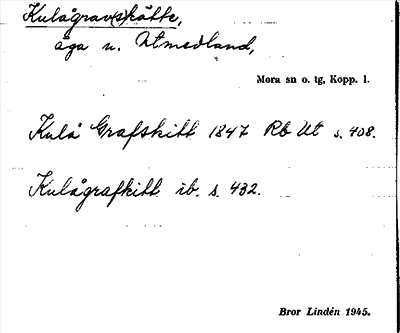 Kulågrav(s)kätte,
äga n. Utmedland,
Mora sn o. tg, Kopp. l.
Kulå Grafskitt 1847 Rb Ut s. 408.
Kulågrafkitt ib. s. 432.
Bror Lindén 1945.